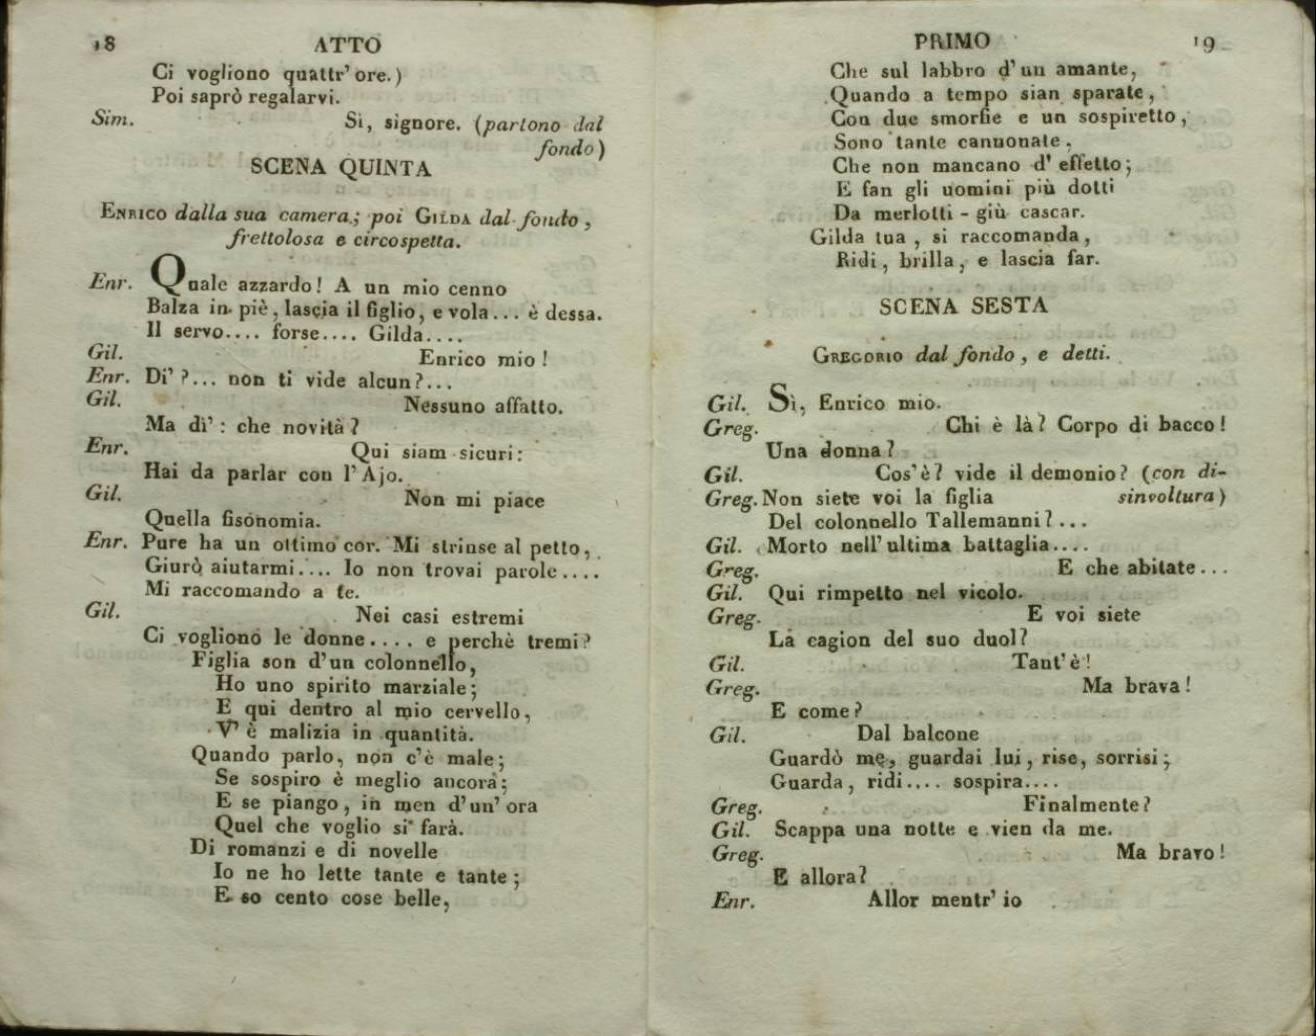 18
ATTO
Ci vogliono quattr' ore.)
Poi saprò regalarvi.
Sim. Sì, signore. (partono dal
fondo)
SCENA QUINTA
ENRICO dalla sua camera; poi GILDA dal fondo,
frettolosa e circospetta.
Enr. Quale azzardo! A un mio cenno
Balza in piè, lascia il figlio, e vola... è dessa.
Il servo.... forse.... Gilda....
Gil. Enrico mio!
Enr. Di'?... non ti vide alcun?...
Gil. Nessuno affatto.
Ma dì': che novità?
Enr. Qui siam sicuri:
Hai da parlar con l'Ajo.
Gil. Non mi piace
Quella fisonomia.
Enr. Pure ha un ottimo cor. Mi strinse al petto,
Giurò aiutarmi.... Io non trovai parole....
Mi raccomando a te.
Gil. Nei casi estremi
Ci vogliono le donne.... e perchè tremi?
Figlia son d'un colonnello,
Ho uno spirito marziale;
E qui dentro al mio cervello,
V' è malizia in quantità.
Quando parlo, non c'è male;
Se sospiro è meglio ancora;
E se piango, in men d'un' ora
Quel che voglio si farà.
Di romanzi e di novelle
Io ne ho lette tante e tante;
E so cento cose belle,
PRIMO
19
Che sul labbro d'un amante,
Quando a tempo sian sparate,
Con due smorfie e un sospiretto,
Sono tante cannonate,
Che non mancano d' effetto;
E fan gli uomini più dotti
Da merlotti - giù cascar.
Gilda tua, si raccomanda,
Ridi, brilla, e lascia far.
SCENA SESTA
GREGORIO dal fondo, e detti.
Gil. Sì, Enrico mio.
Greg. Chi è là? Corpo di bacco!
Una donna?
Gil. Cos'è? vide il demonio? (con di-
Greg. Non siete voi la figlia sinvoltura)
Del colonnello Tallemanni?...
Gil. Morto nell'ultima battaglia....
Greg. E che abitate...
Gil. Qui rimpetto nel vicolo.
Greg. E voi siete
La cagion del suo duol?
Gil. Tant'è!
Greg. Ma brava!
E come?
Gil. Dal balcone
Guardò me, guardai lui, rise, sorrisi;
Guarda, ridi.... sospira....
Greg. Finalmente?
Gil. Scappa una notte e vien da me.
Greg. Ma bravo!
E allora?
Enr. Allor mentr' io